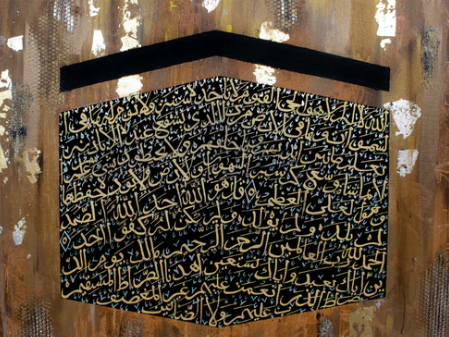 الله لا إله إلا هو الحي القيوم لا تأخذه سنة ولا نوم له ما في
السموات وما في الأرض من ذا الذي يشفع عنده إلا بإذنه
يعلم ما بين أيديهم وما خلفهم ولا يحيطون بشيء من علمه
إلا بما شاء وسع كرسيه السموات والأرض ولا يؤده حفظهما
وهو العلي العظيم قل هو الله أحد الله الصمد
لم يلد ولم يولد ولم يكن له كفوا أحد
الحمد لله رب العالمين الرحمن الرحيم مالك يوم الد
ين إياك نعبد وإياك نستعين اهدنا الصراط المستقيم
صراط الذين أنعمت عليهم غير المغضوب
عليهم ولا الضالين